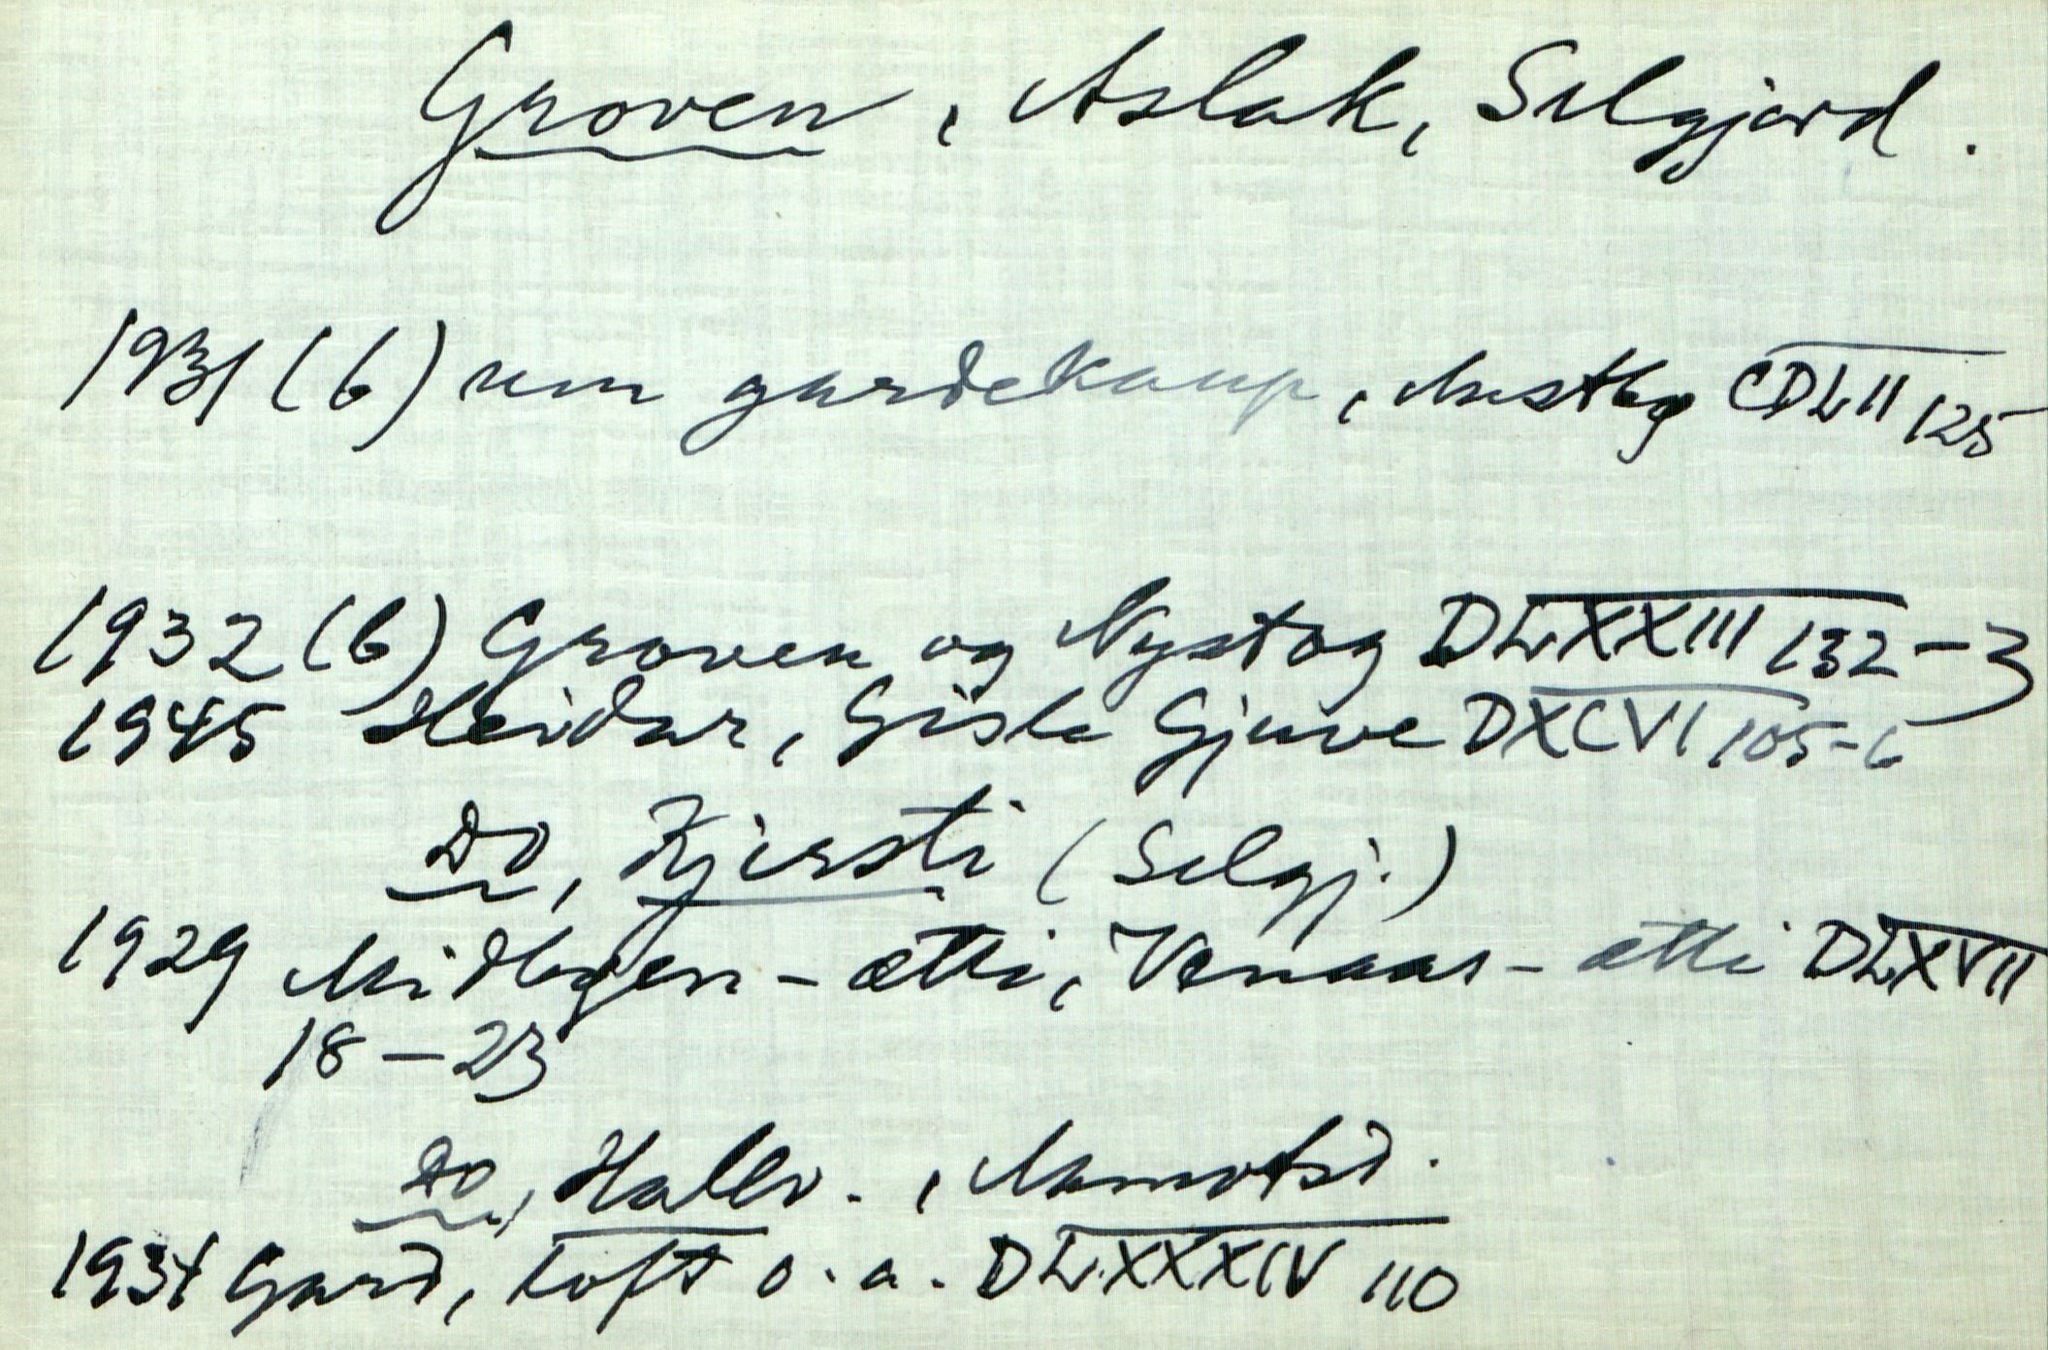 Groven, Aslak, Selgjord.
1931 (b) um gardekaup, Austbg CDLII 125
1932 (b) Groven og Nystog DLXXIII 132-3
1945 Heidar, Gisle Gjuve DXCVI 105-6
Do, Kjersti (Selgj.)
1929 Midbgen-ætti, Venaas-ætti DLXVII
18-23
Do, Hallv.,
1934 Gard, Loft o.a. DLXXXIV 110